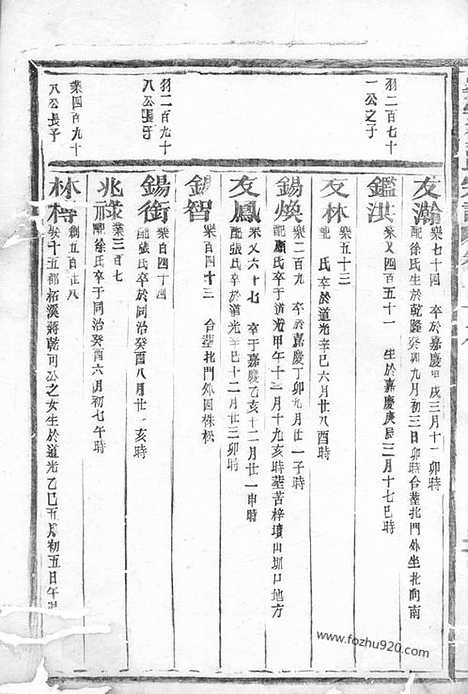 羽二百七十
一公之子
羽二百九十
八公長子
葉四百九十
八公長子
友瀚 榮七十四 卒於嘉慶甲戌三月十一卯時
配徐氏生於乾隆癸卯九月初三日卯時合塟北門外坐北向南
鑑洪 榮又四百五十一 生於嘉慶庚辰二月十七巳時
友林 榮五十三
配 氏卒於道光辛巳六月廿八酉時
錫煥 榮二百九 卒於嘉慶丁卯九月廿一卯時
配 氏卒於道光甲午十二月十九亥時塟苦梓墳山圳口地方
友鳳 榮又六十七 卒于嘉慶乙亥十二月廿一申時
配張氏卒於道光辛巳十二月廿三卯時
錫智 榮百四十三 合塟北門外園株松
錫銜 榮百四十四
配張氏卒於同治癸酉八月廿一亥時
兆祿 榮三百七
配徐氏卒于同治癸酉六月初七午時
林 創五百廿八
娶十五都柘溪蔣乾可公之女生於道光乙巳五月初五日午時
www.fozhu920.com